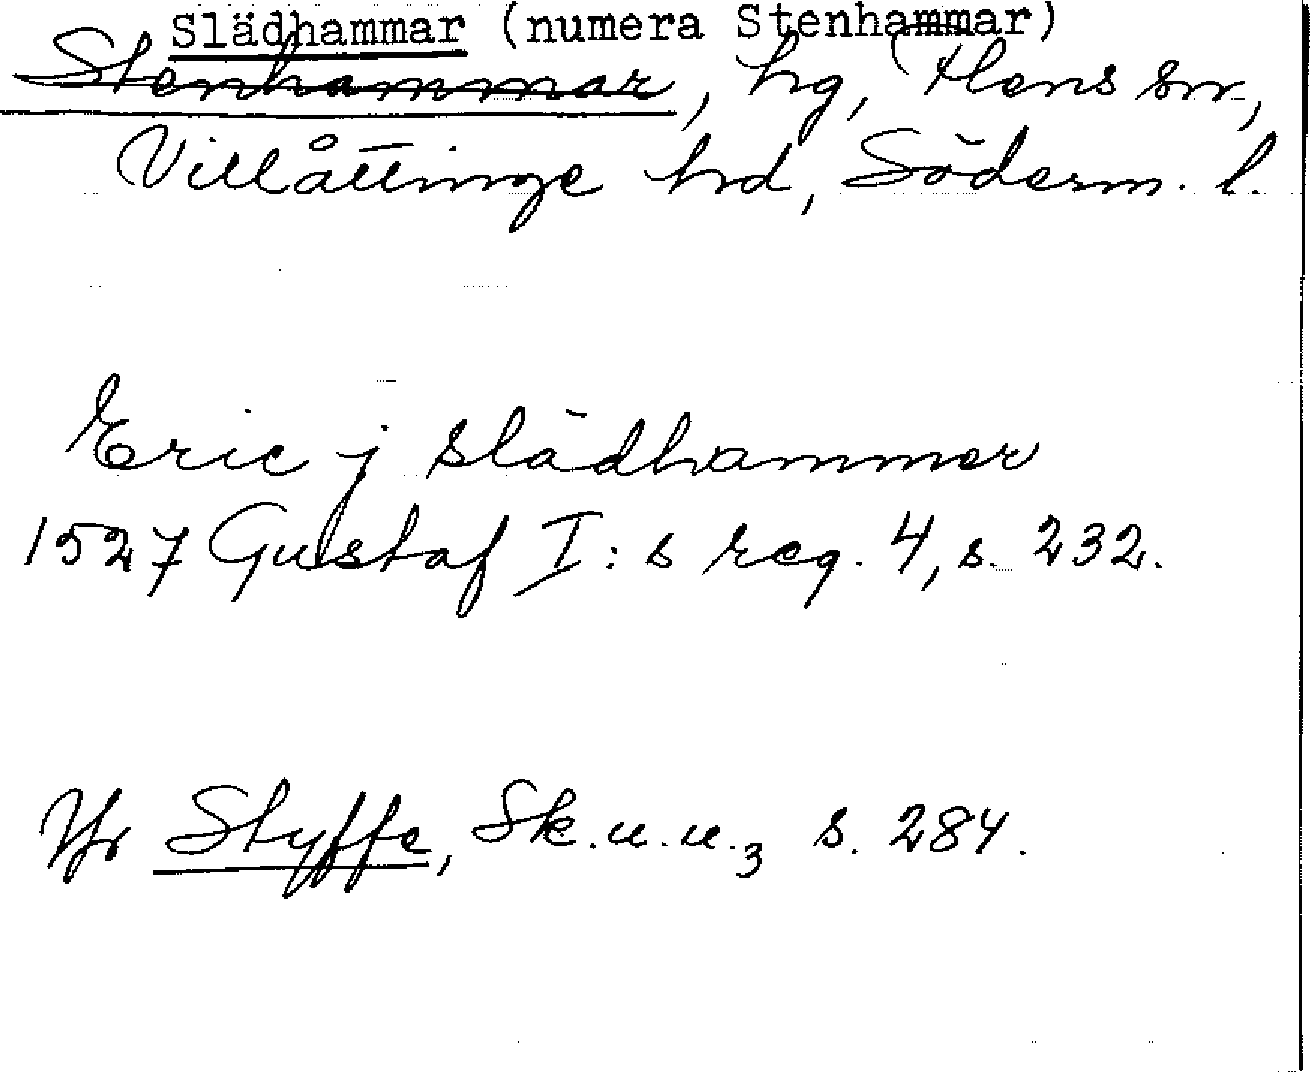 Slädhammar (numera Stenhammar)
Stenhammar, hg, Flens sn,
Villåttinge hd, Söderm. l.
Eric j slädhammer
1527 Gustaf I:s reg. 4, s. 232.
Jfr Styffe, Sk.u.u.3 s. 284.